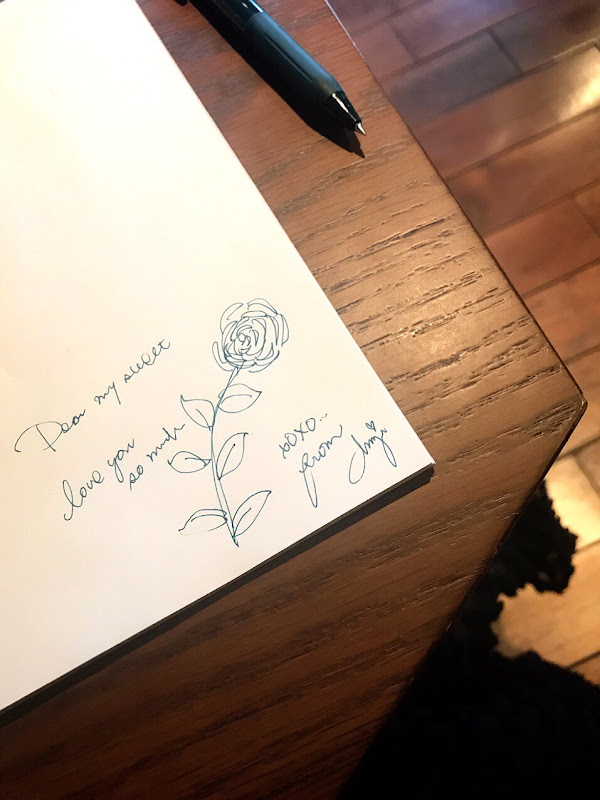 Dear my sweet
love you
so much
xoxo...
from